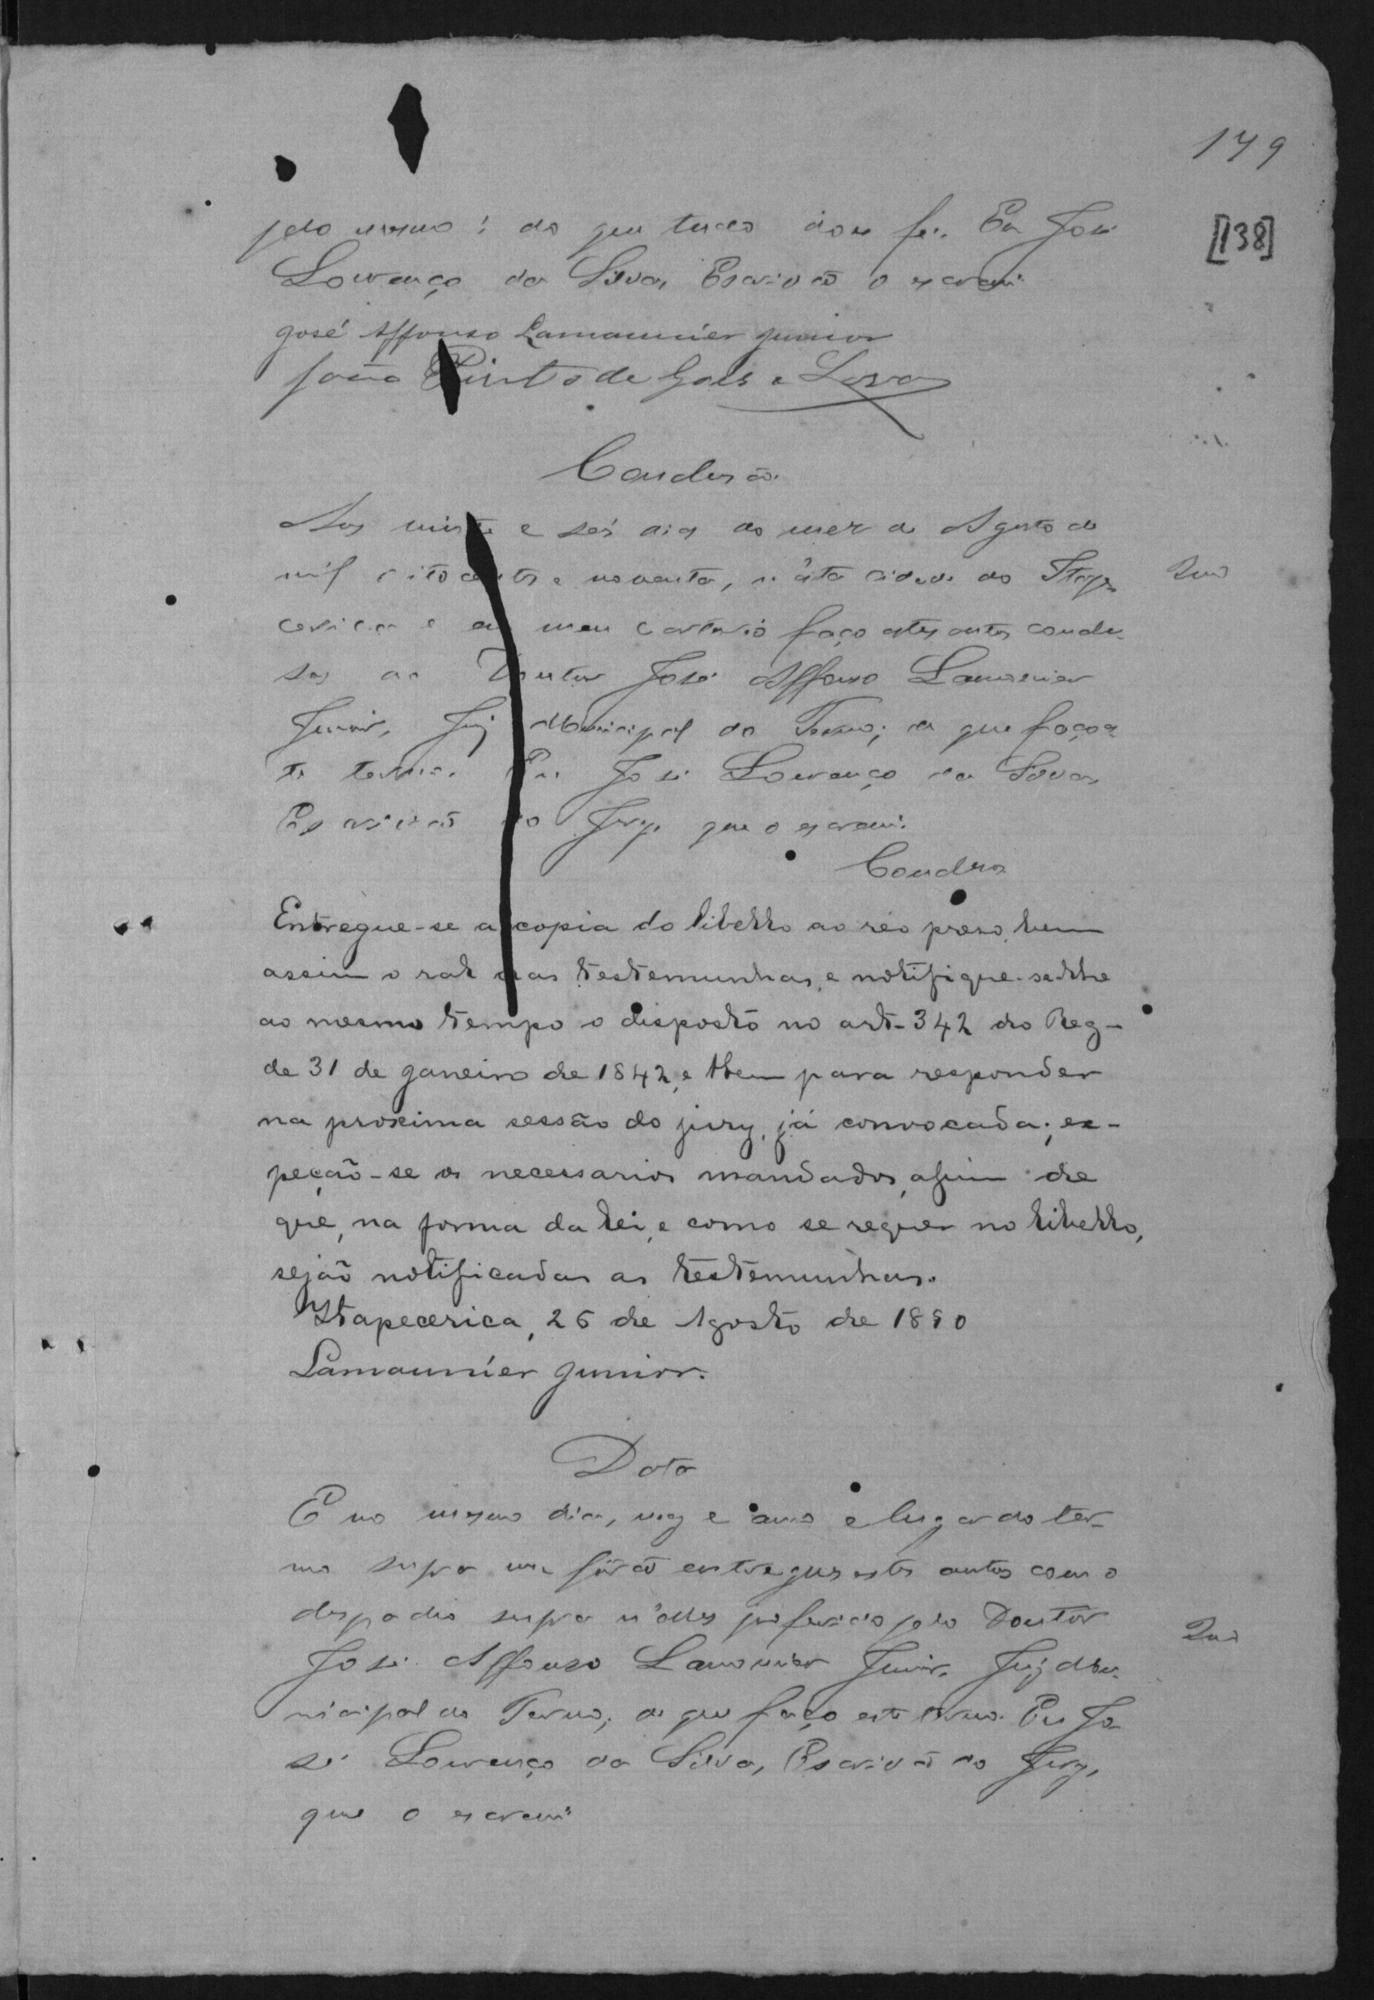 179
[138]
pelo mesmo; do que tudo dou fé. Eu José
Lourenço da Silva, Escrivão o escrevi
José Affonso Lamaunier Junior
João Pinto de Goes e Lara
Conclusão
Aos vinte e seis dias do mez de Agosto de
mil e oitocentos e noventa, n'esta cidade do Itape
cerica e em meu cartorio faço estes autos conclu-
sos ao Doutor José Affonso Lamounier
Junior, Juiz Municipal do Termo; do que faço es
te termo. Eu José Lourenço da Silva
Escrivão do Jury que o escrevi.
Conclusos
Entregue-se a copia do libello ao réo preso, bem
assim o rol das testemunhas, e notifique-se-lhe
ao mesmo tempo o disposto no art. 342 do Reg-
de 31 de Janeiro de 1842, e bem para responder
na proxima sessão do jury, já convocada; ex-
peção-se os necessarios mandados, afim de
que, na forma da lei, e como se requer no libello,
sejão notificadas as testemunhas.
Itapecerica, 26 de Agosto de 1890
Lamaunier Junior.
Data
E no mesmo dia, mez e anno e lugar do ter-
mo supra me forão entregues estes autos com o
despacho supra n'elles proferido pelo Doutor
José Affonso Lamounier Junior, Juiz Mu-
nicipal do Termo; do que faço este termo. Eu Jo
sé Lourenço da Silva, Escrivão do Jury,
que o escrevi